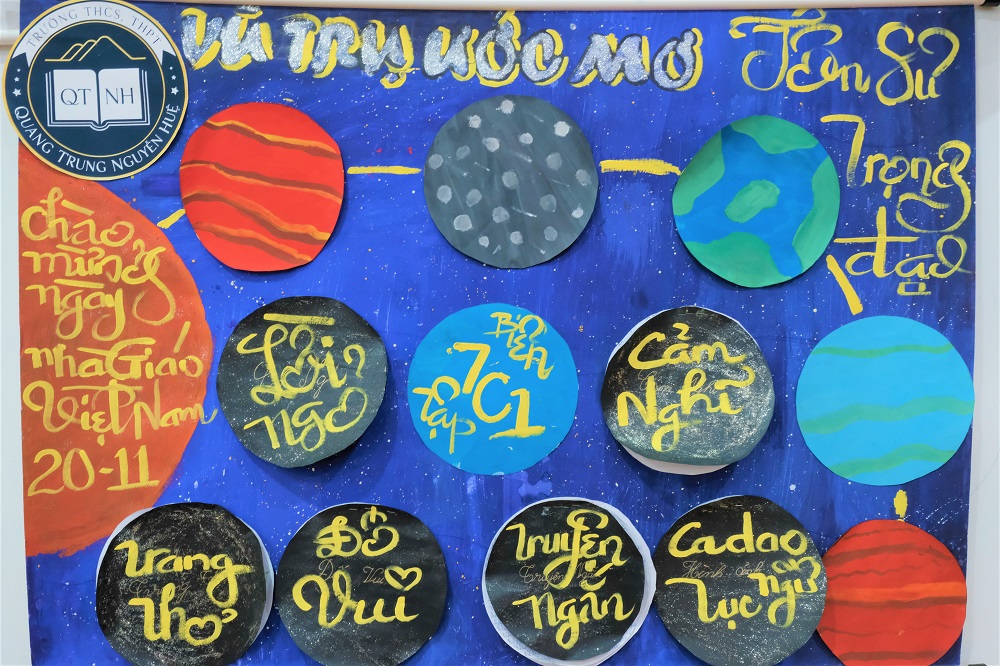 TRƯỜNG THCS, THPT
QT NH
QUANG TRUNG NGUYỄN HUỆ
VŨ TRỤ ƯỚC MƠ
Tôn Sư
Trọng
đạo
chào
mừng
ngày
nhà Giáo
Việt Nam
20-11
Lời
ngỏ
Biên
tập
7C1
Cảm
Nghĩ
Trang
thơ
Đố
Vui
Truyện
Ngắn
Ca dao
Tục ngữ